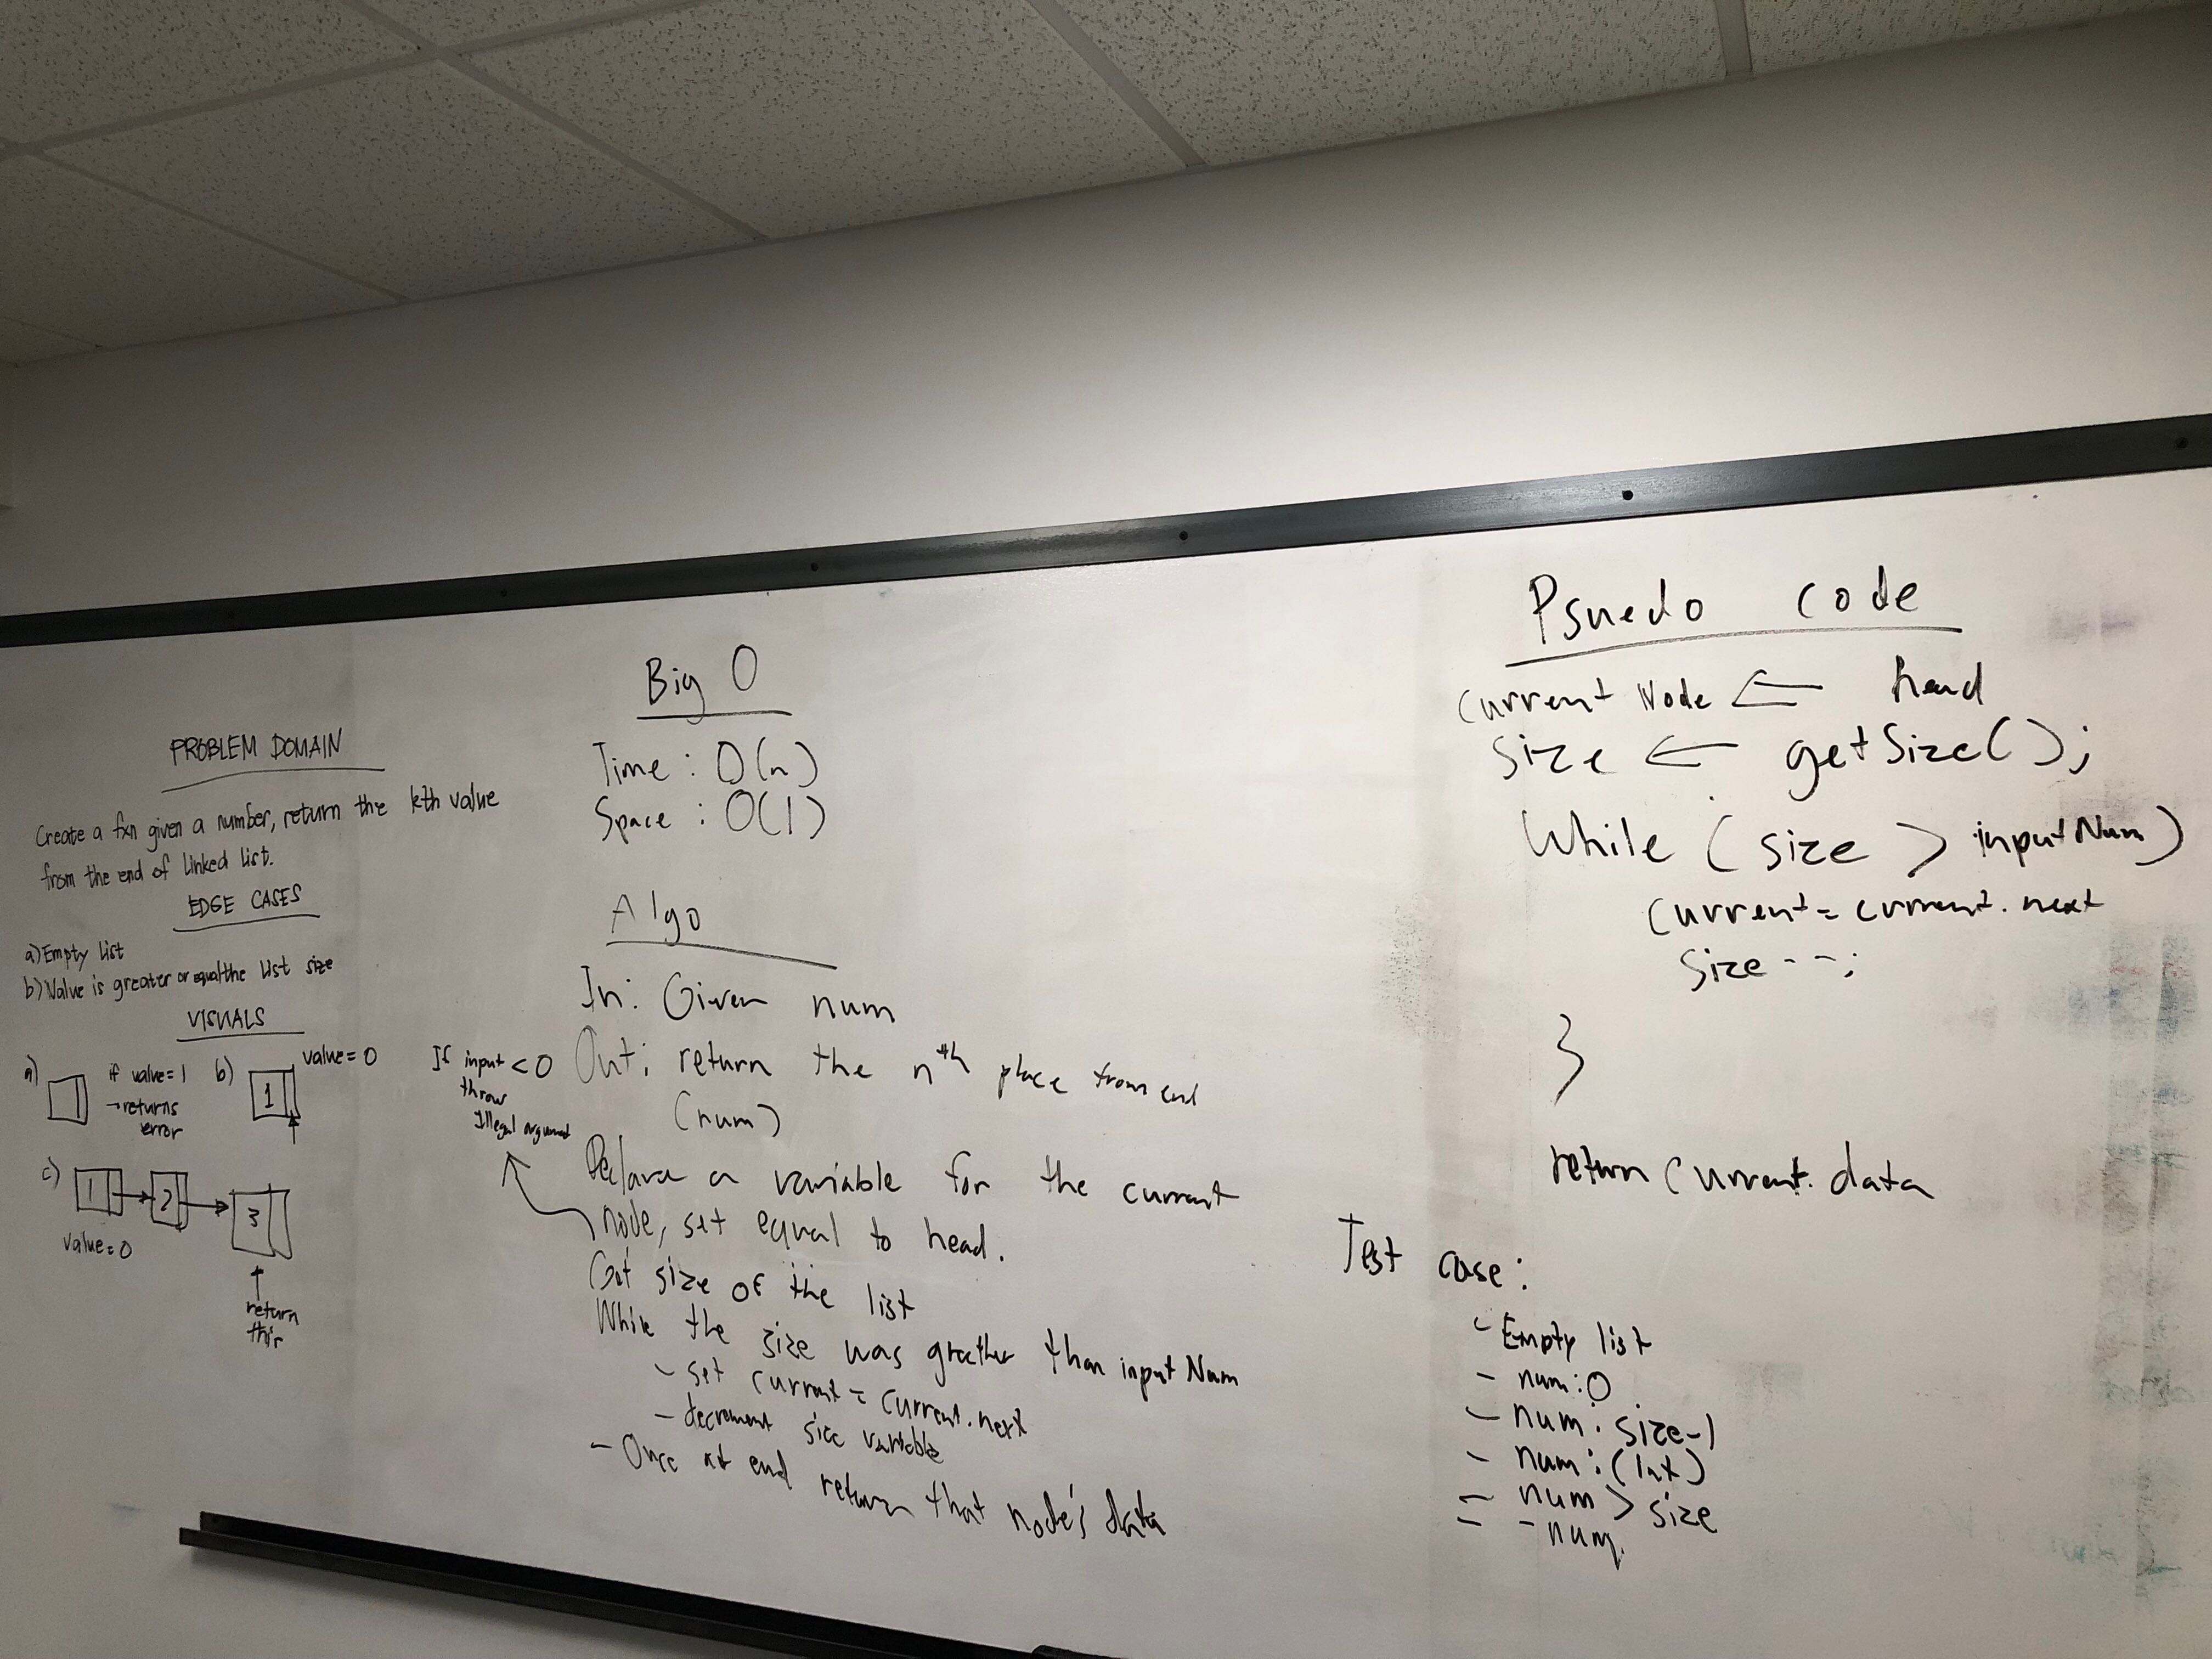 PROBLEM DOMAIN
Create a fxn given a number, return the kth value
from the end of linked list.
EDGE CASES
a) Empty list
b) Value is greater or equal the list size
VISUALS
a)
if value = 1
→ returns
error
b)
1
value = 0
c)
1 → 2 → 3
value = 0
↑
return
this
If input < 0
throw
Illegal argument
Big O
Time : O(n)
Space : O(1)
Algo
In: Given num
Out: return the nth place from end
(num)
Declare a variable for the current
node, set equal to head.
Get size of the list
While the size was greather than inputNum
- set current = current.next
- decrement size variable
- Once at end return that node's data
Psuedo code
Current Node ← head
Size ← getSize();
While (size > inputNum)
Current = current.next
Size--;
}
return Current.data
Test case:
- Empty list
- num: 0
- num: size-1
- num: (int)
- num > size
- -num.